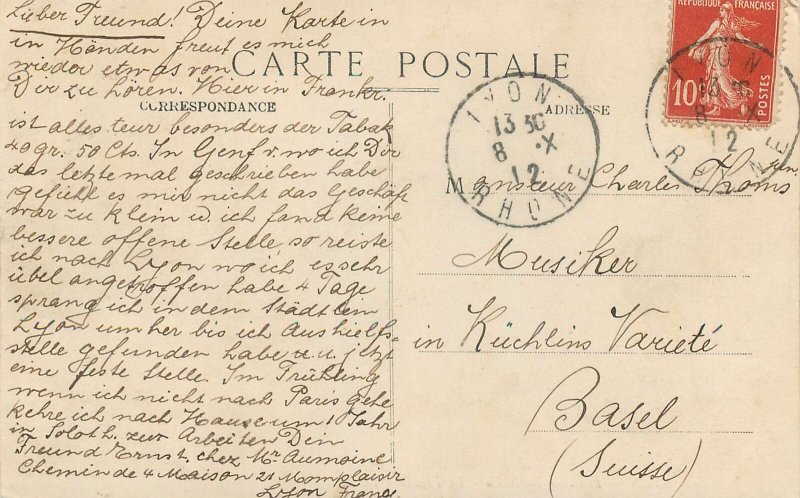 Lieber Freund! Deine Karte in
in Händen freut es mich
wieder etwas von
Dir zu hören. Hier in Frankr.
ist alles teur besonders der Tabak
40 gr. 50 Cts. In Genf v. wo ich Dir
das letzte mal geschrieben habe
gefiehl es mir nicht das Geschäft
war zu klein u. ich fand keine
bessere offene Stelle so reiste
ich nach Lyon wo ich es sehr
übel angetroffen habe 4 Tage
sprang ich in dem Städtlein
Lyon umher bis ich Aushielfs-
stelle gefunden habe u. u. jetzt
eine feste Stelle. Im Frühling
wenn ich nicht nach Paris gehe
kehre ich nach Hause um 1 Jahr
in Soloth. zur Arbeiten Dein
Freund Ernst. chez Mr Aumoine
Chemin de 4 Maison 21 Momplaisir
Lyon France
CARTE POSTALE
CORRESPONDANCE
ADRESSE
REPUBLIQUE FRANÇAISE
10c
POSTES
LYON
13 30
8 X
12
RHONE
LYON
13 30
8 X
12
RHONE
Monsieur Charles Thoms jun.
Musiker
in Küchlins Varieté
Basel
(Suisse)